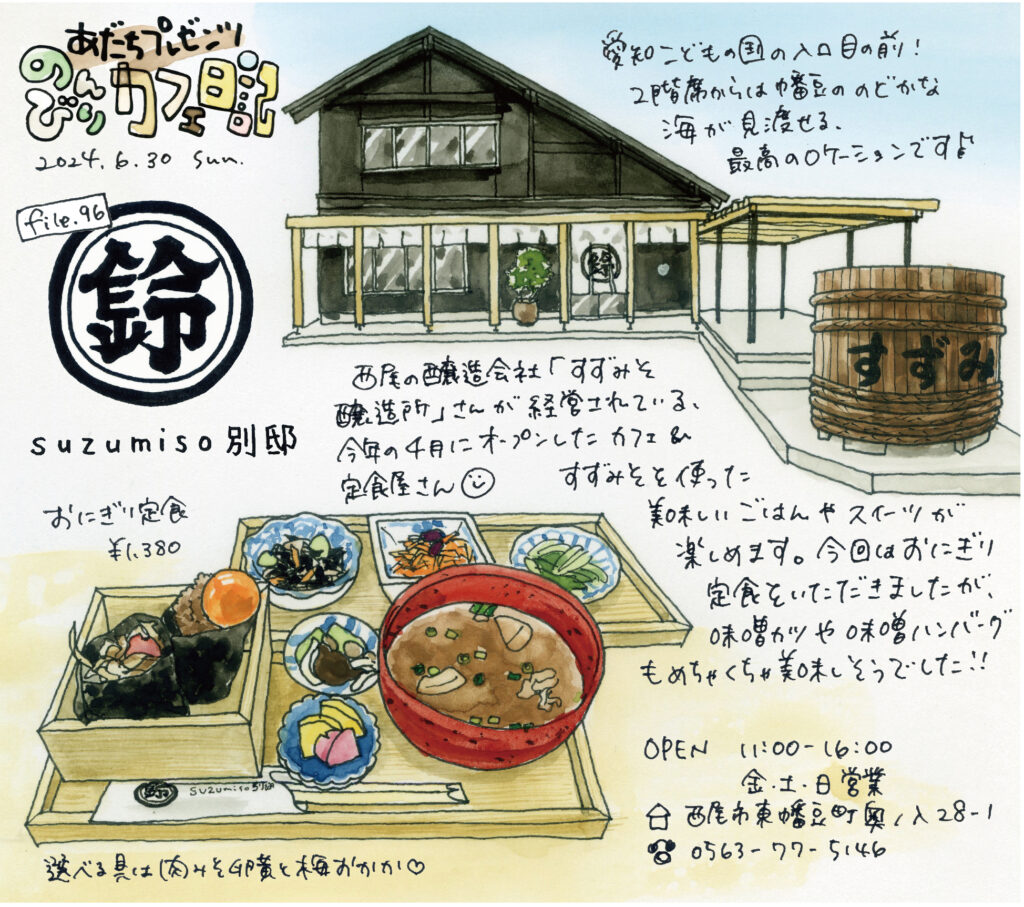 あだちプレゼンツ
のんびり カフェ日記
2024.6.30 sun.
file.96
鈴
suzumiso別邸
愛知こどもの国の入口目の前!
2階席からは幡豆ののどかな
海が見渡せる、
最高のロケーションです♪
鈴
すずみ
西尾の醸造会社「すずみそ
醸造所」さんが経営されている、
今年の4月にオープンしたカフェ&
定食屋さん☺
すずみそを使った
美味しいごはんやスイーツが
楽しめます。今回はおにぎり
定食をいただきましたが、
味噌カツや味噌ハンバーグ
もめちゃくちゃ美味しそうでした!!
おにぎり定食
¥1,380
鈴 suzumiso別邸
選べる具は(肉)みそ卵黄と梅おかか♡
OPEN 11:00-16:00
金・土・日営業
西尾市東幡豆町奥ノ入28-1
0563-77-5146